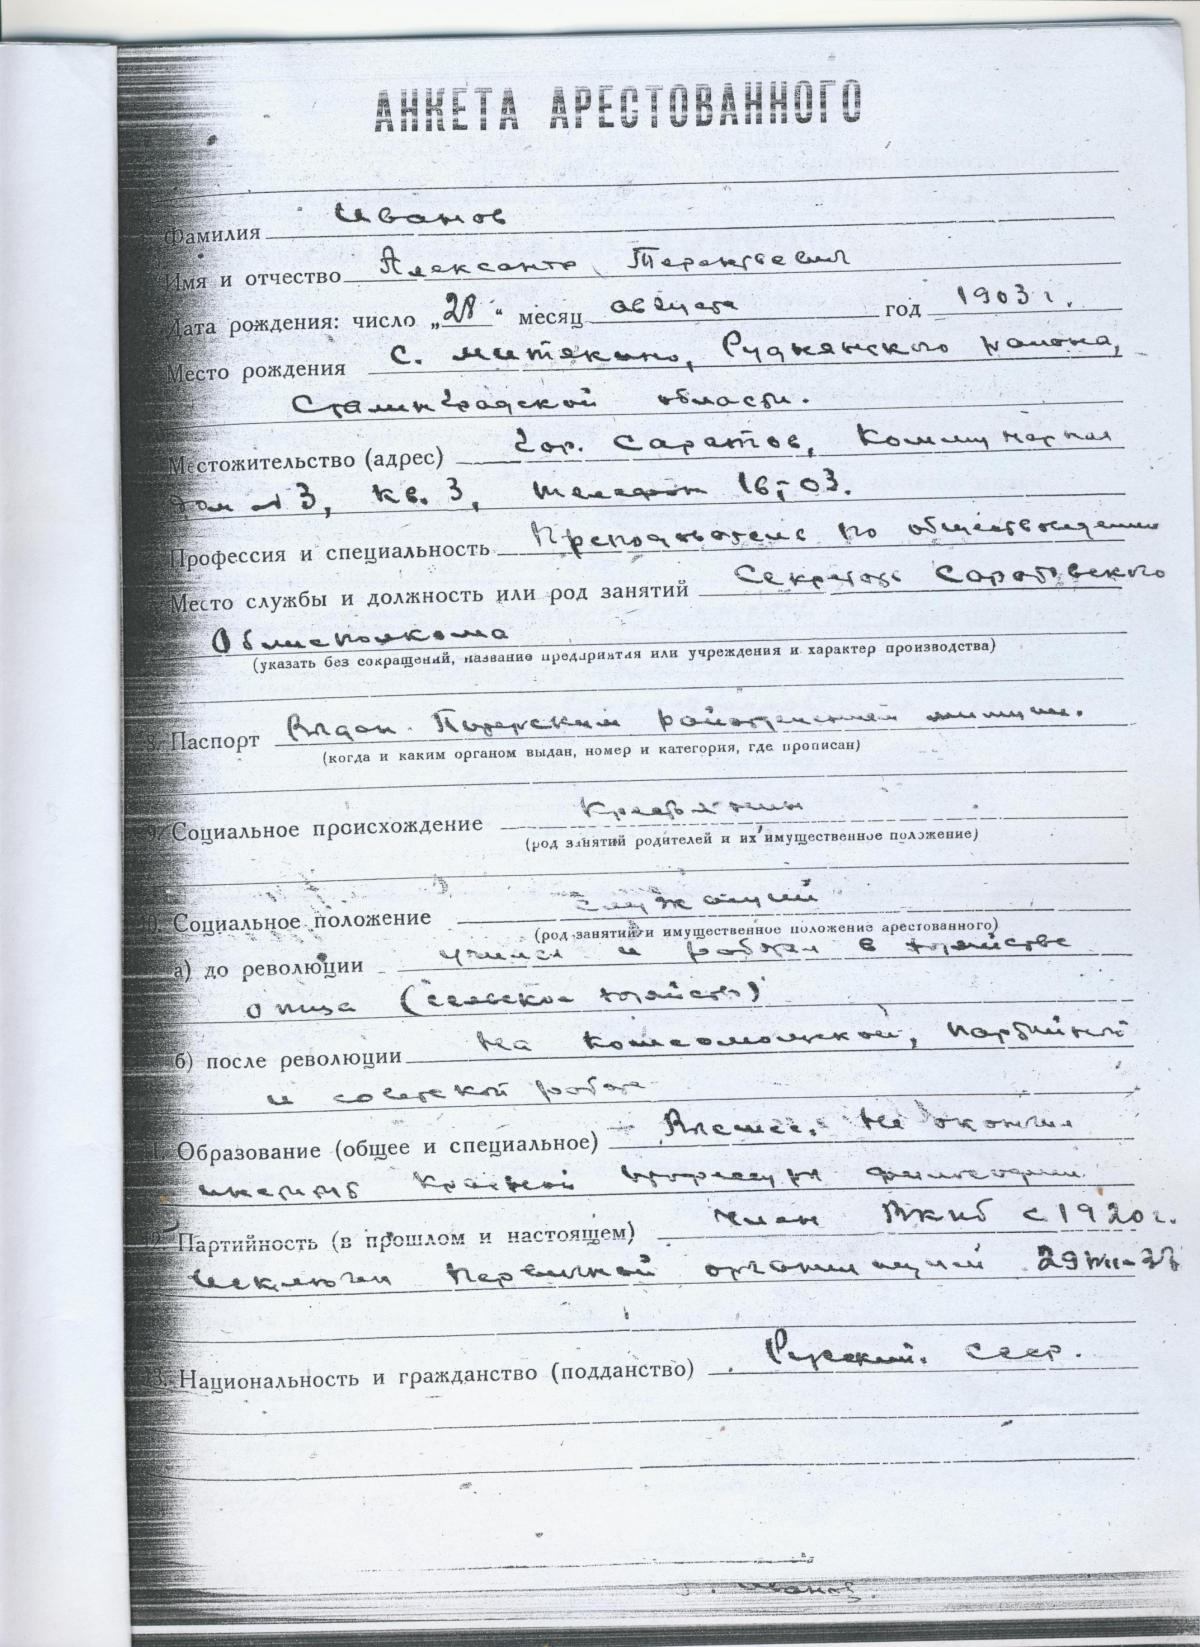 АНКЕТА АРЕСТОВАННОГО
Фамилия Иванов
Имя и отчество Александр Терентьевич
Дата рождения: число „28“ месяц августа год 1903 г.
Место рождения с. Митякино, Руднянского района,
Сталинградской области.
Местожительство (адрес) гор. Саратов, Коммунарная
дом № 3, кв. 3, телефон 16-03.
Профессия и специальность Преподаватель по обществоведению
Место службы и должность или род занятий Секретарь Саратовского
Облисполкома
(указать без сокращений, название предприятия или учреждения и характер производства)
8. Паспорт Выдан райотделением милиции.
(когда и каким органом выдан, номер и категория, где прописан)
9. Социальное происхождение Крестьянин
(род занятий родителей и их имущественное положение)
10. Социальное положение Служащий
(род занятий и имущественное положение арестованного)
а) до революции учился и работал в хозяйстве
отца (сельское хозяйство)
б) после революции На комсомольской, партийной
и советской работе
11. Образование (общее и специальное) Высшее. Не окончил
институт Красной профессуры философии
12. Партийность (в прошлом и настоящем) член ВКПб с 1920 г.
Исключен первичной организацией 29
13. Национальность и гражданство (подданство) Русский. СССР.
Иванов